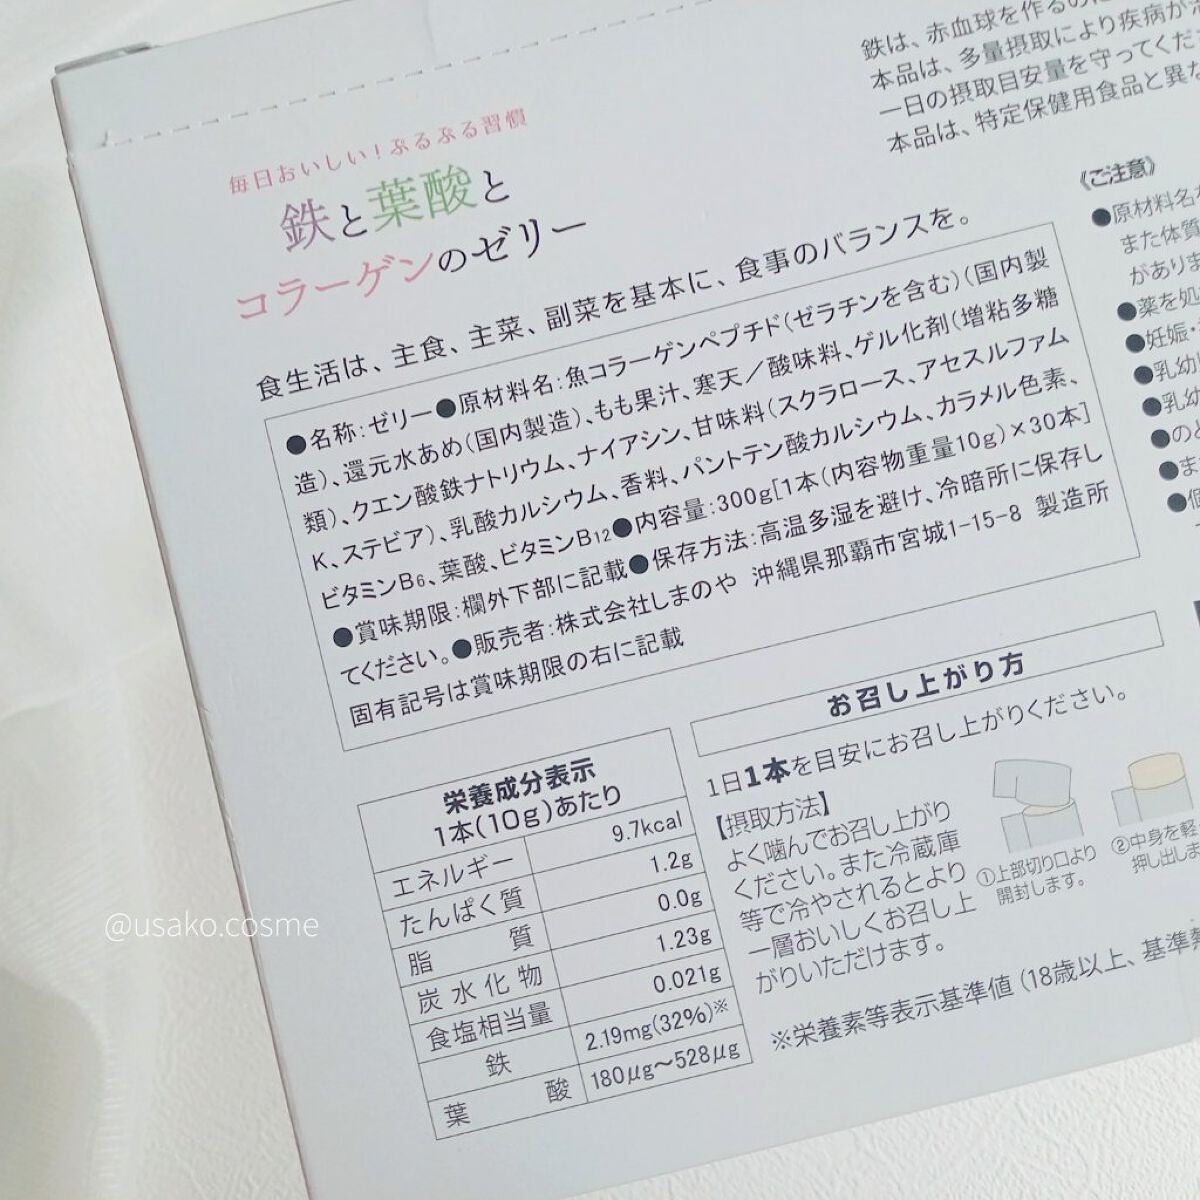 鉄は、赤血球を作るのに
本品は、多量摂取により疾病が
一日の摂取目安量を守ってくだ
本品は、特定保健用食品と異な
毎日おいしい!ぷるぷる習慣
鉄と葉酸と
コラーゲンのゼリー
食生活は、主食、主菜、副菜を基本に、食事のバランスを。
●名称:ゼリー●原材料名:魚コラーゲンペプチド(ゼラチンを含む)(国内製
造)、還元水あめ(国内製造)、もも果汁、寒天/酸味料、ゲル化剤(増粘多糖
類)、クエン酸鉄ナトリウム、ナイアシン、甘味料(スクラロース、アセスルファム
K、ステビア)、乳酸カルシウム、香料、パントテン酸カルシウム、カラメル色素、
ビタミンB6、葉酸、ビタミンB12●内容量:300g[1本(内容物重量10g)×30本]
●賞味期限:欄外下部に記載●保存方法:高温多湿を避け、冷暗所に保存し
てください。●販売者:株式会社しまのや 沖縄県那覇市宮城1-15-8 製造所
固有記号は賞味期限の右に記載
《ご注意》
●原材料名
また体質
がありま
●薬を
●妊娠・
●乳幼
●乳幼
●のど
●ま
栄養成分表示
1本(10g)あたり
エネルギー 9.7kcal
たんぱく質 1.2g
脂質 0.0g
炭水化物 1.23g
食塩相当量 0.021g
鉄 2.19mg(32%)※
葉酸 180μg~528μg
お召し上がり方
1日1本を目安にお召し上がりください。
【摂取方法】
よく噛んでお召し上がり
ください。また冷蔵庫
等で冷やされるとより
一層おいしくお召し上
がりいただけます。
①上部切り口より
開封します。
②中身を軽
押し出しま
※栄養素等表示基準値(18歳以上、基準
@usako.cosme